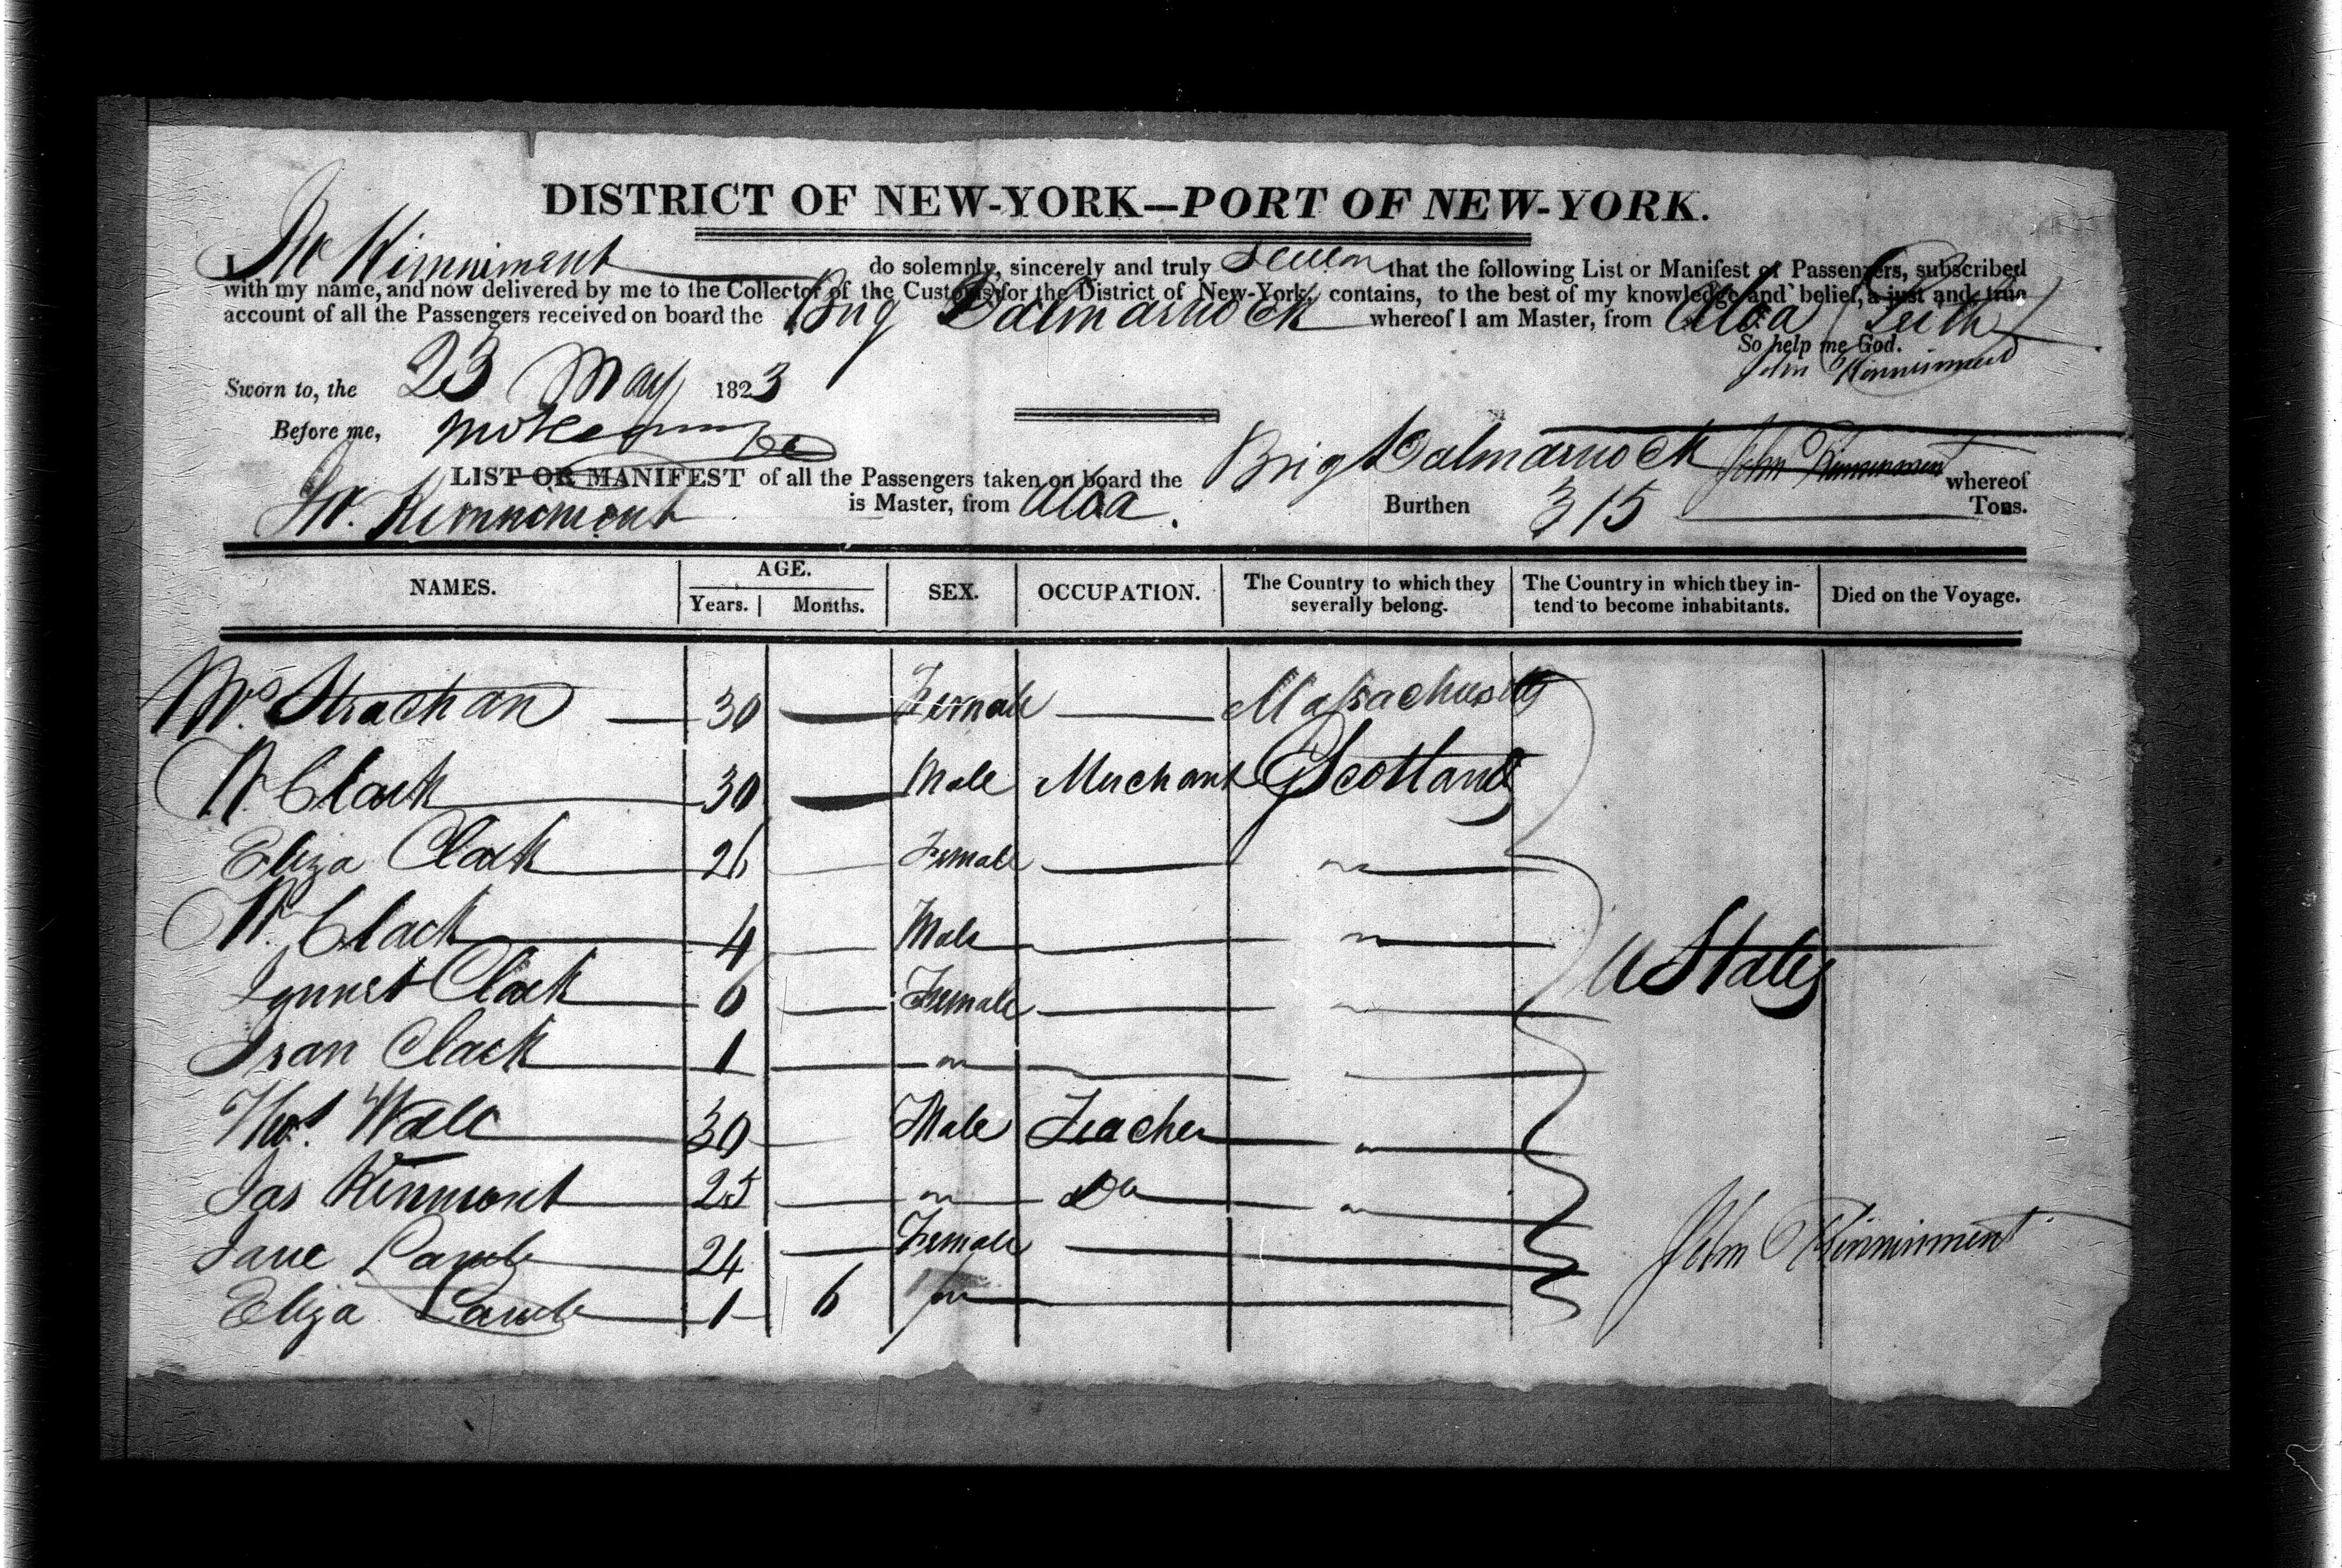 DISTRICT OF NEW-YORK—PORT OF NEW-YORK.
I, Jno Kinniment do solemnly, sincerely and truly Swear that the following List or Manifest of Passengers, subscribed
with my name, and now delivered by me to the Collector of the Customs for the District of New-York, contains, to the best of my knowledge and belief, a just and true
account of all the Passengers received on board the Brig Dalmarnock whereof I am Master, from Aloa (Leith)
So help me God.
Sworn to, the 23 May 1823 John Kinniment
Before me,
LIST OR MANIFEST of all the Passengers taken on board the Brig Dalmarnock John Kinniment whereof
Jno. Kinniment is Master, from Aloa. Burthen 315 Tons.
NAMES. AGE. SEX. OCCUPATION. The Country to which they severally belong. The Country in which they intend to become inhabitants. Died on the Voyage.
Years. Months.
Mrs. Strachan 30 — Female — Massachusetts
W. Clark 30 — Male Merchant Scotland
Eliza Clark 26 Female — "
W. Clark 4 — Male — "
Jennet Clark 6 — Female — "
Jean Clark 1 — " —
U States
Thos. Wall 30 — Male Teacher "
Jas Kinmont 25 — " Do "
Jane Lamb 24 — Female —
Eliza Lamb 1 6 " —
John Kinniment